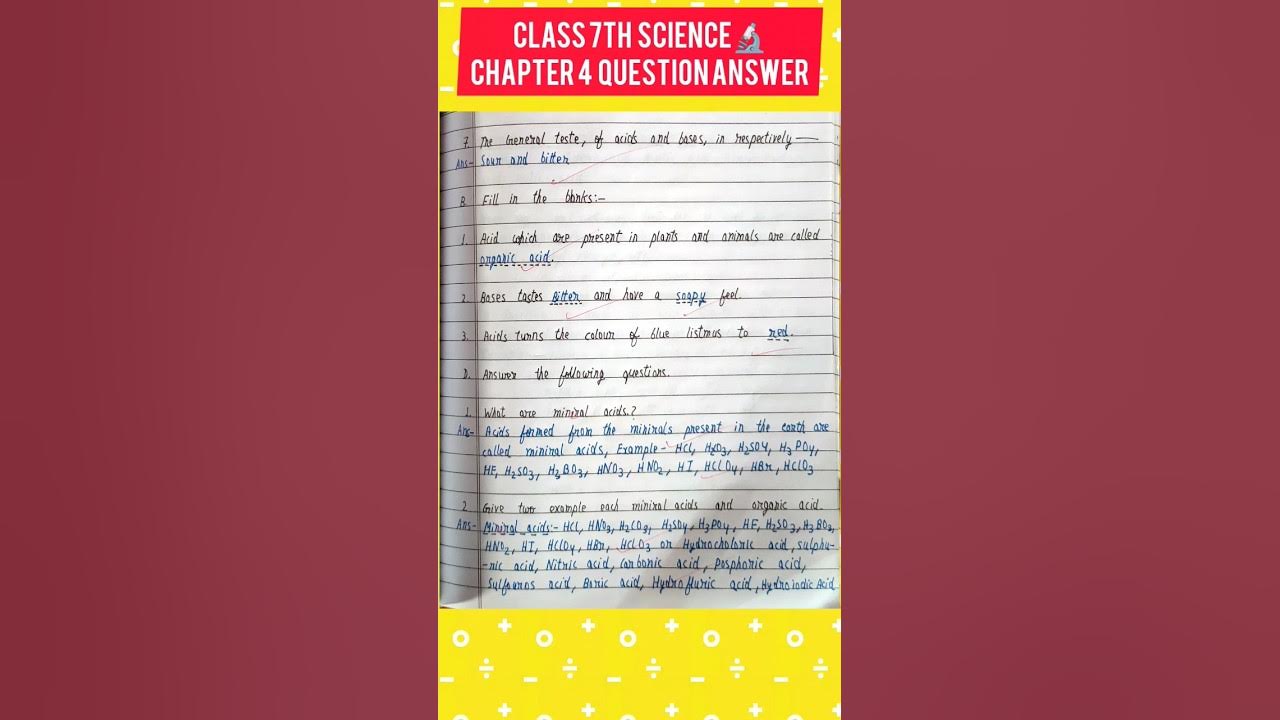 CLASS 7TH SCIENCE
CHAPTER 4 QUESTION ANSWER
7. The General teste, of acids and bases, in respectively —
Ans- Sour and bitter
B Fill in the blanks:-
1. Acid which are present in plants and animals are called
organic acid.
2. Bases tastes Bitter and have a soapy feel.
3. Acids turns the colour of blue listmus to red.
D. Answer the following questions.
1. What are miniral acids.?
Ans- Acids formed from the minirals present in the earth are
called miniral acids, Example- HCl, H2SO4, H3PO4,
HF, H2SO3, H3BO3, HNO3, HNO2, HI, HClO4, HBr, HClO3
2. Give two example each miniral acids and organic acid.
Ans- Miniral acids:- HCl, HNO3, H2CO3, H2SO4, H3PO4, HF, H2SO3, H3BO3,
HNO2, HI, HClO4, HBr, HClO3 or Hydrocholoric acid, sulphu-
-ric acid, Nitric acid, carbonic acid, posphoric acid,
Sulfouros acid, Boric acid, Hydrofluric acid, Hydroiodic Acid